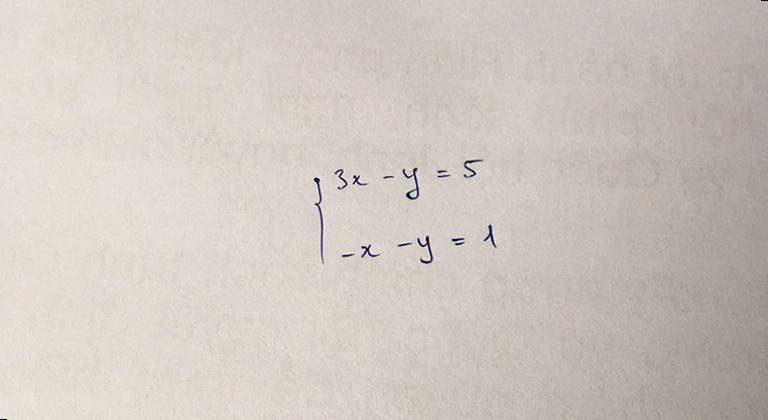 3x - y = 5
-x - y = 1